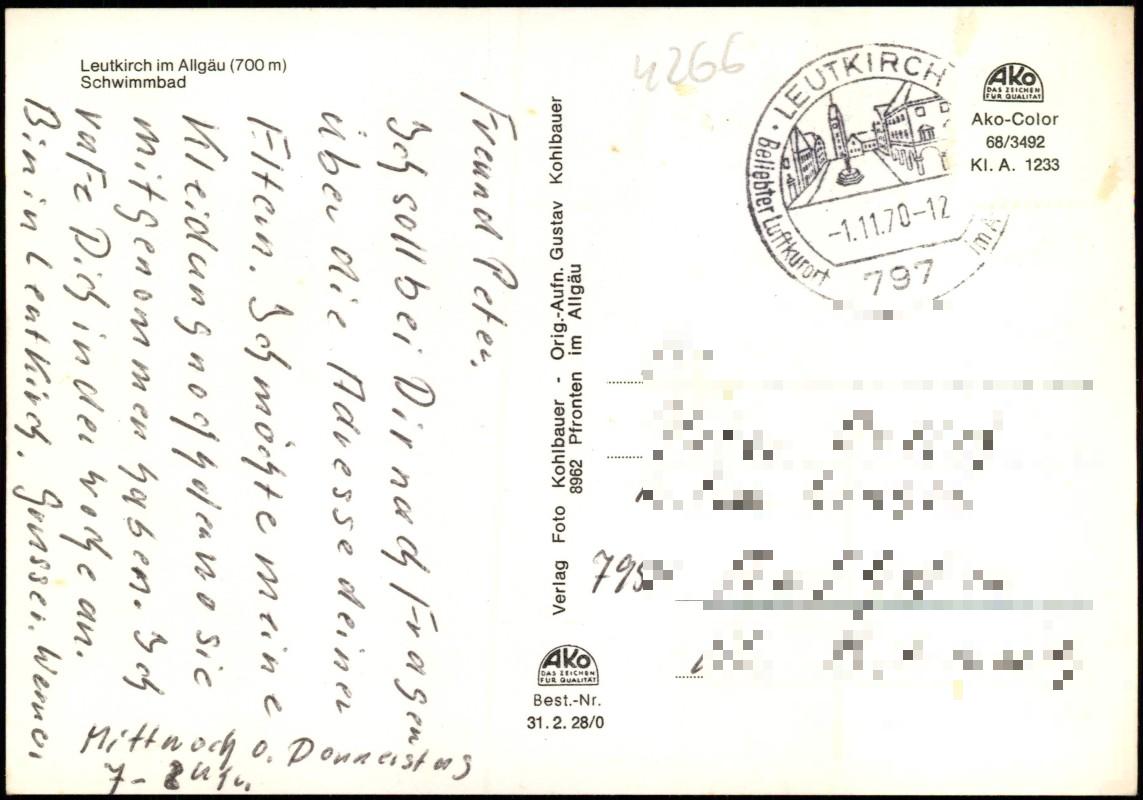 Leutkirch im Allgäu (700 m)
Schwimmbad
Freund Peter.
Ich soll bei Dir nach Fragen
über die Adresse deiner
Eltern. Ich möchte meine
Kleidung noch
sie
mitgenommen haben. Ich
rufe Dich in der Woche an.
Bin in Leutkirch. Werner.
Mittwoch o. Donnerstag
7-8 Uhr.
Verlag Foto Kohlbauer - Orig.-Aufn. Gustav Kohlbauer
8962 Pfronten im Allgäu
AKO
DAS ZEICHEN
FÜR QUALITÄT
Best.-Nr.
31. 2. 28/0
4266
LEUTKIRCH
Beliebter Luftkurort
im A
-1.11.70-12
797
AKO
DAS ZEICHEN
FÜR QUALITÄT
Ako-Color
68/3492
Kl. A. 1233
795